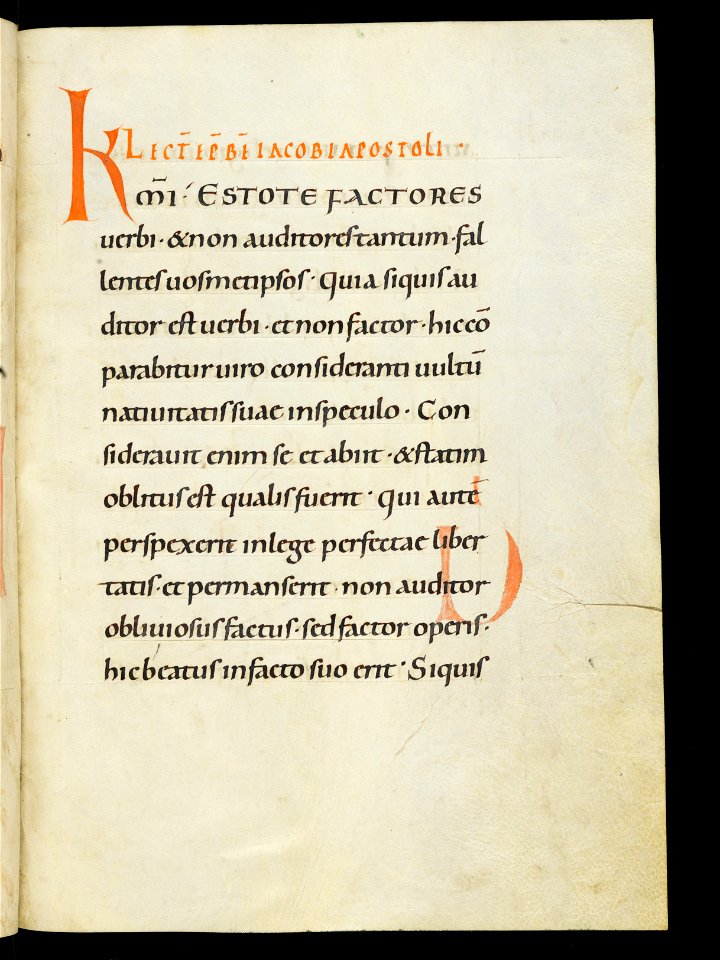 LECT̄ EP̄ BĒI IACOBI APOSTOLI ·
K m̄i · ESTOTE FACTORES
uerbi · & non auditores tantum · fal
lentes uosmetipsos · Quia siquis au
ditor est uerbi · et non factor · hic cō
parabitur uiro consideranti uultū
natiuitatis suae inspeculo · Con
siderauit enim se et abiit · & statim
oblitus est qualis fuerit · Qui autē
perspexerit inlege perfectae liber
tatis · et permanserit · non auditor
obliuiosus factus · sed factor operis ·
hic beatus infacto suo erit · Siquis